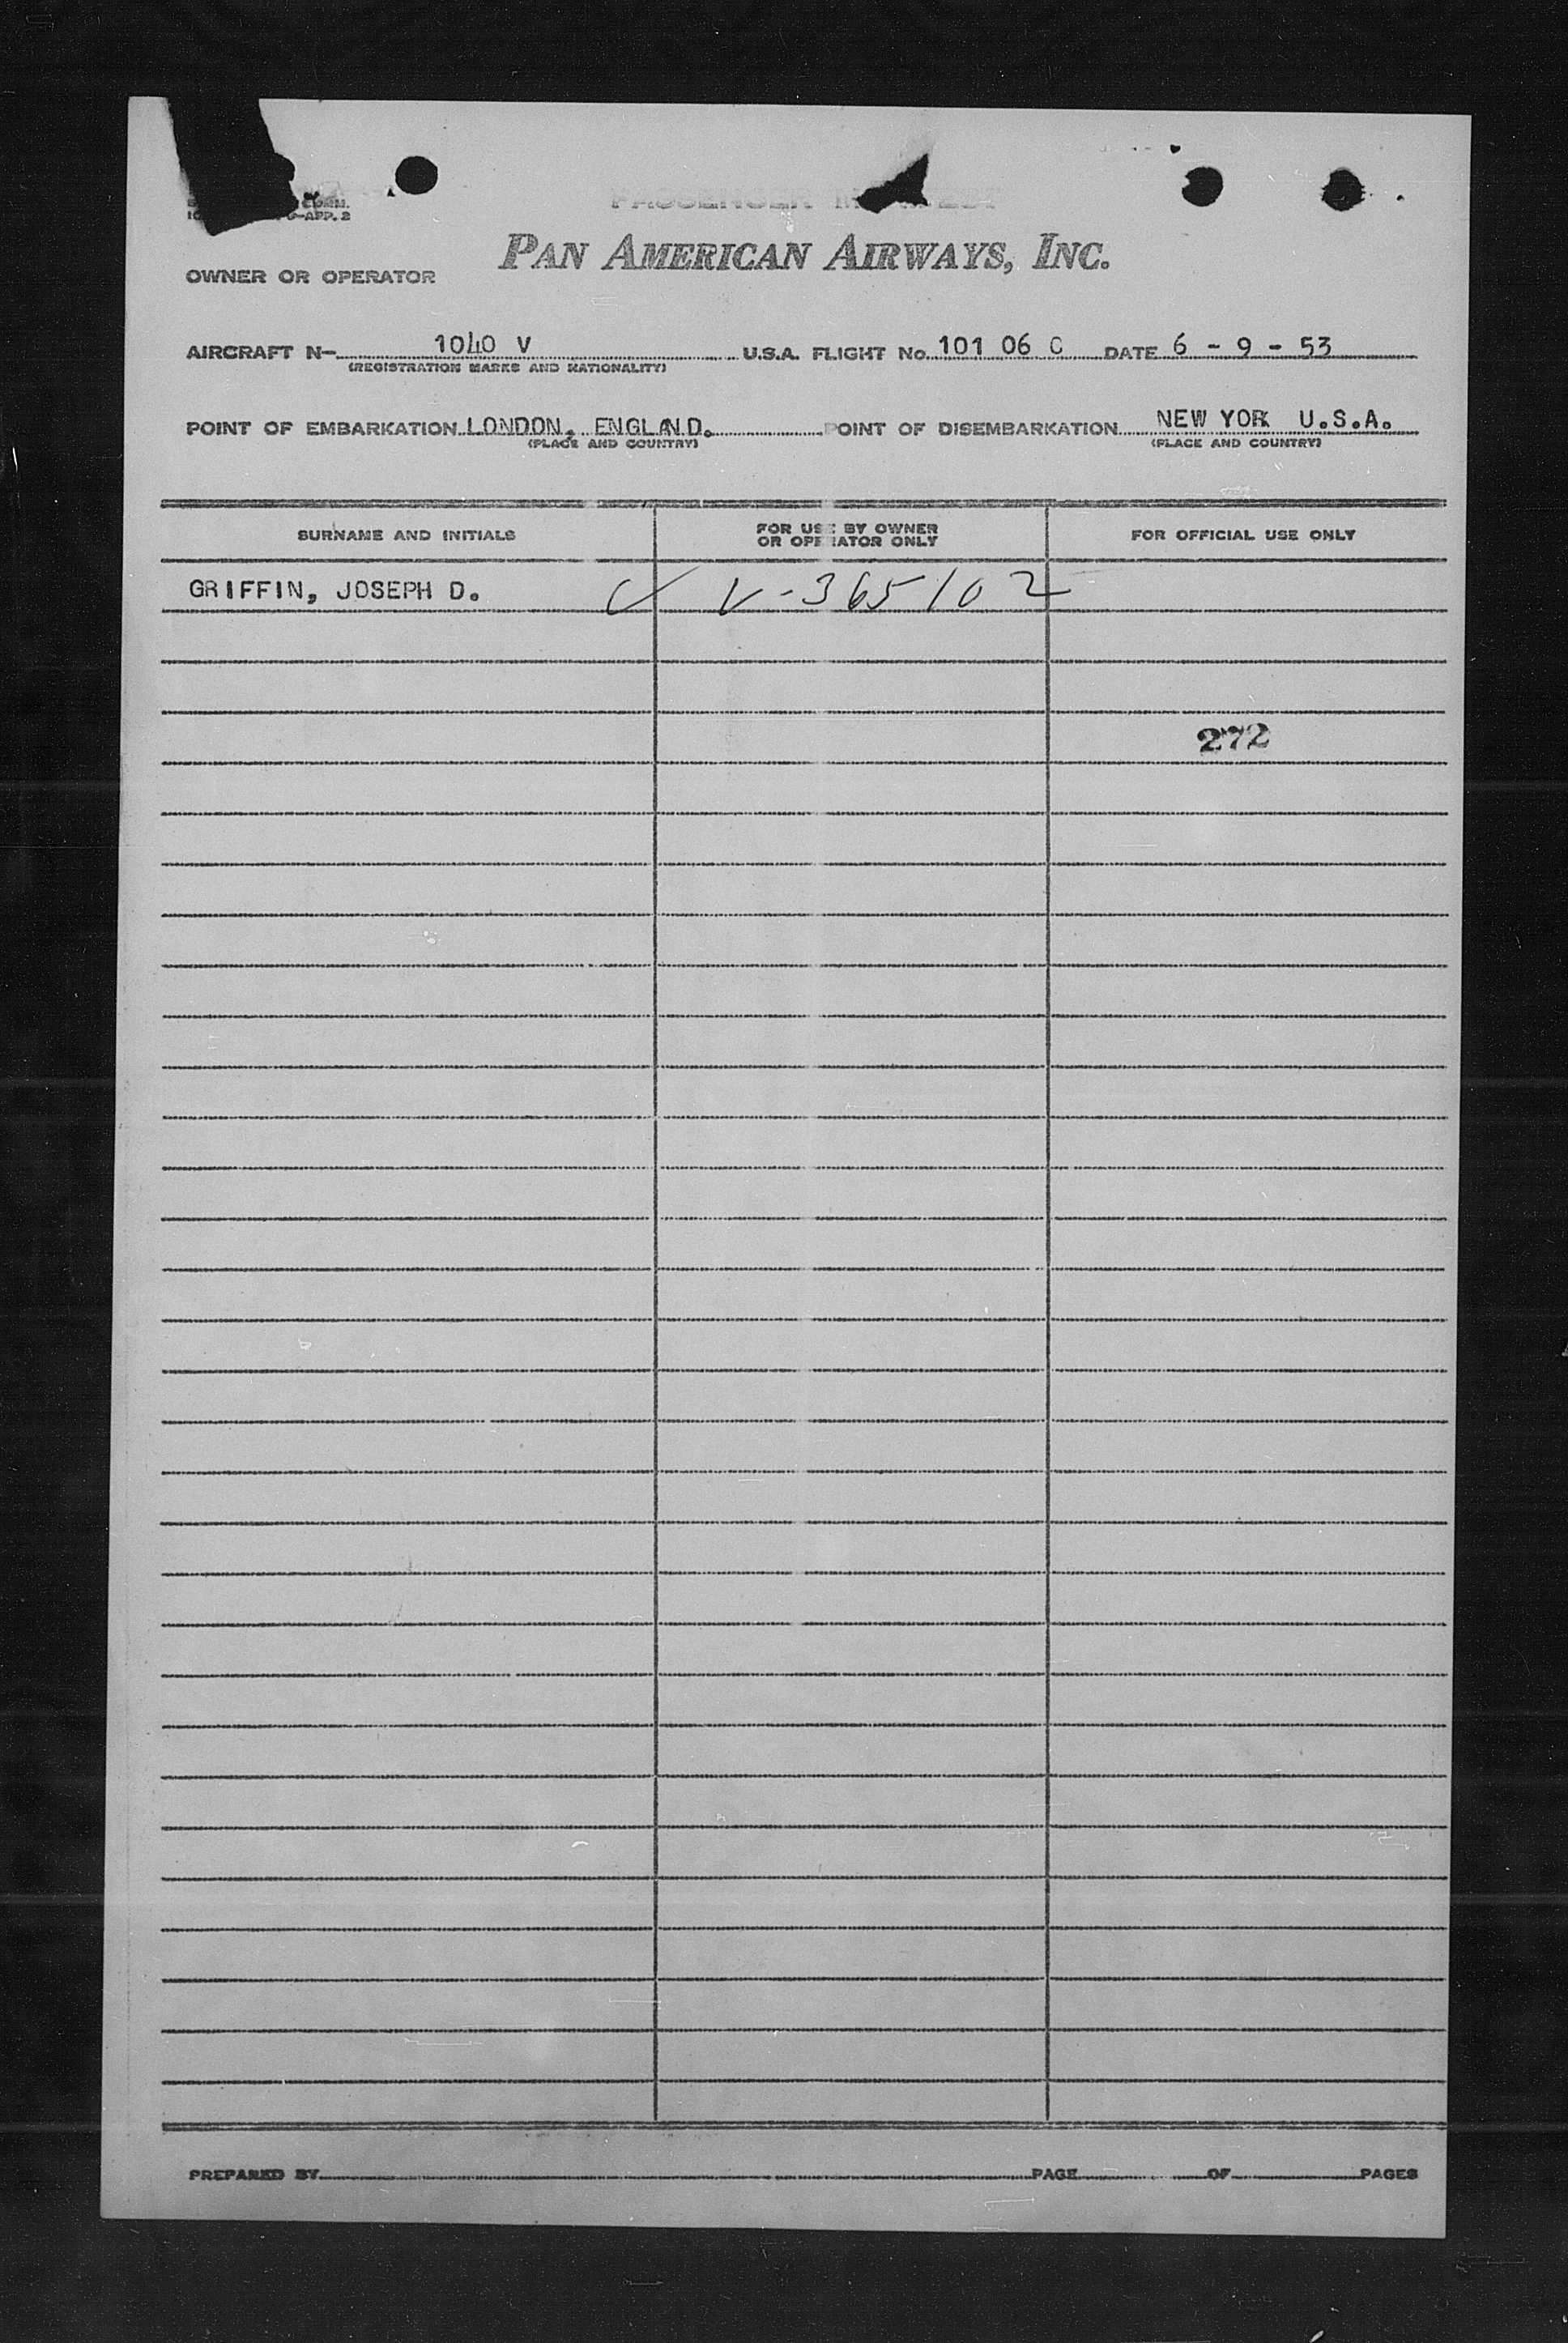 CORM.
-APP. 2
PASSENGER
PAN AMERICAN AIRWAYS, INC.
OWNER OR OPERATOR
AIRCRAFT N- 1040 V U.S.A. FLIGHT No. 101 06 C DATE 6 - 9 - 53
(REGISTRATION MARKS AND NATIONALITY)
POINT OF EMBARKATION LONDON, ENGLAND. POINT OF DISEMBARKATION NEW YORK U.S.A.
(PLACE AND COUNTRY) (PLACE AND COUNTRY)
SURNAME AND INITIALS FOR USE BY OWNER OR OPERATOR ONLY FOR OFFICIAL USE ONLY
GRIFFIN, JOSEPH D. ✓ V-365102
272
PREPARED BY PAGE OF PAGES